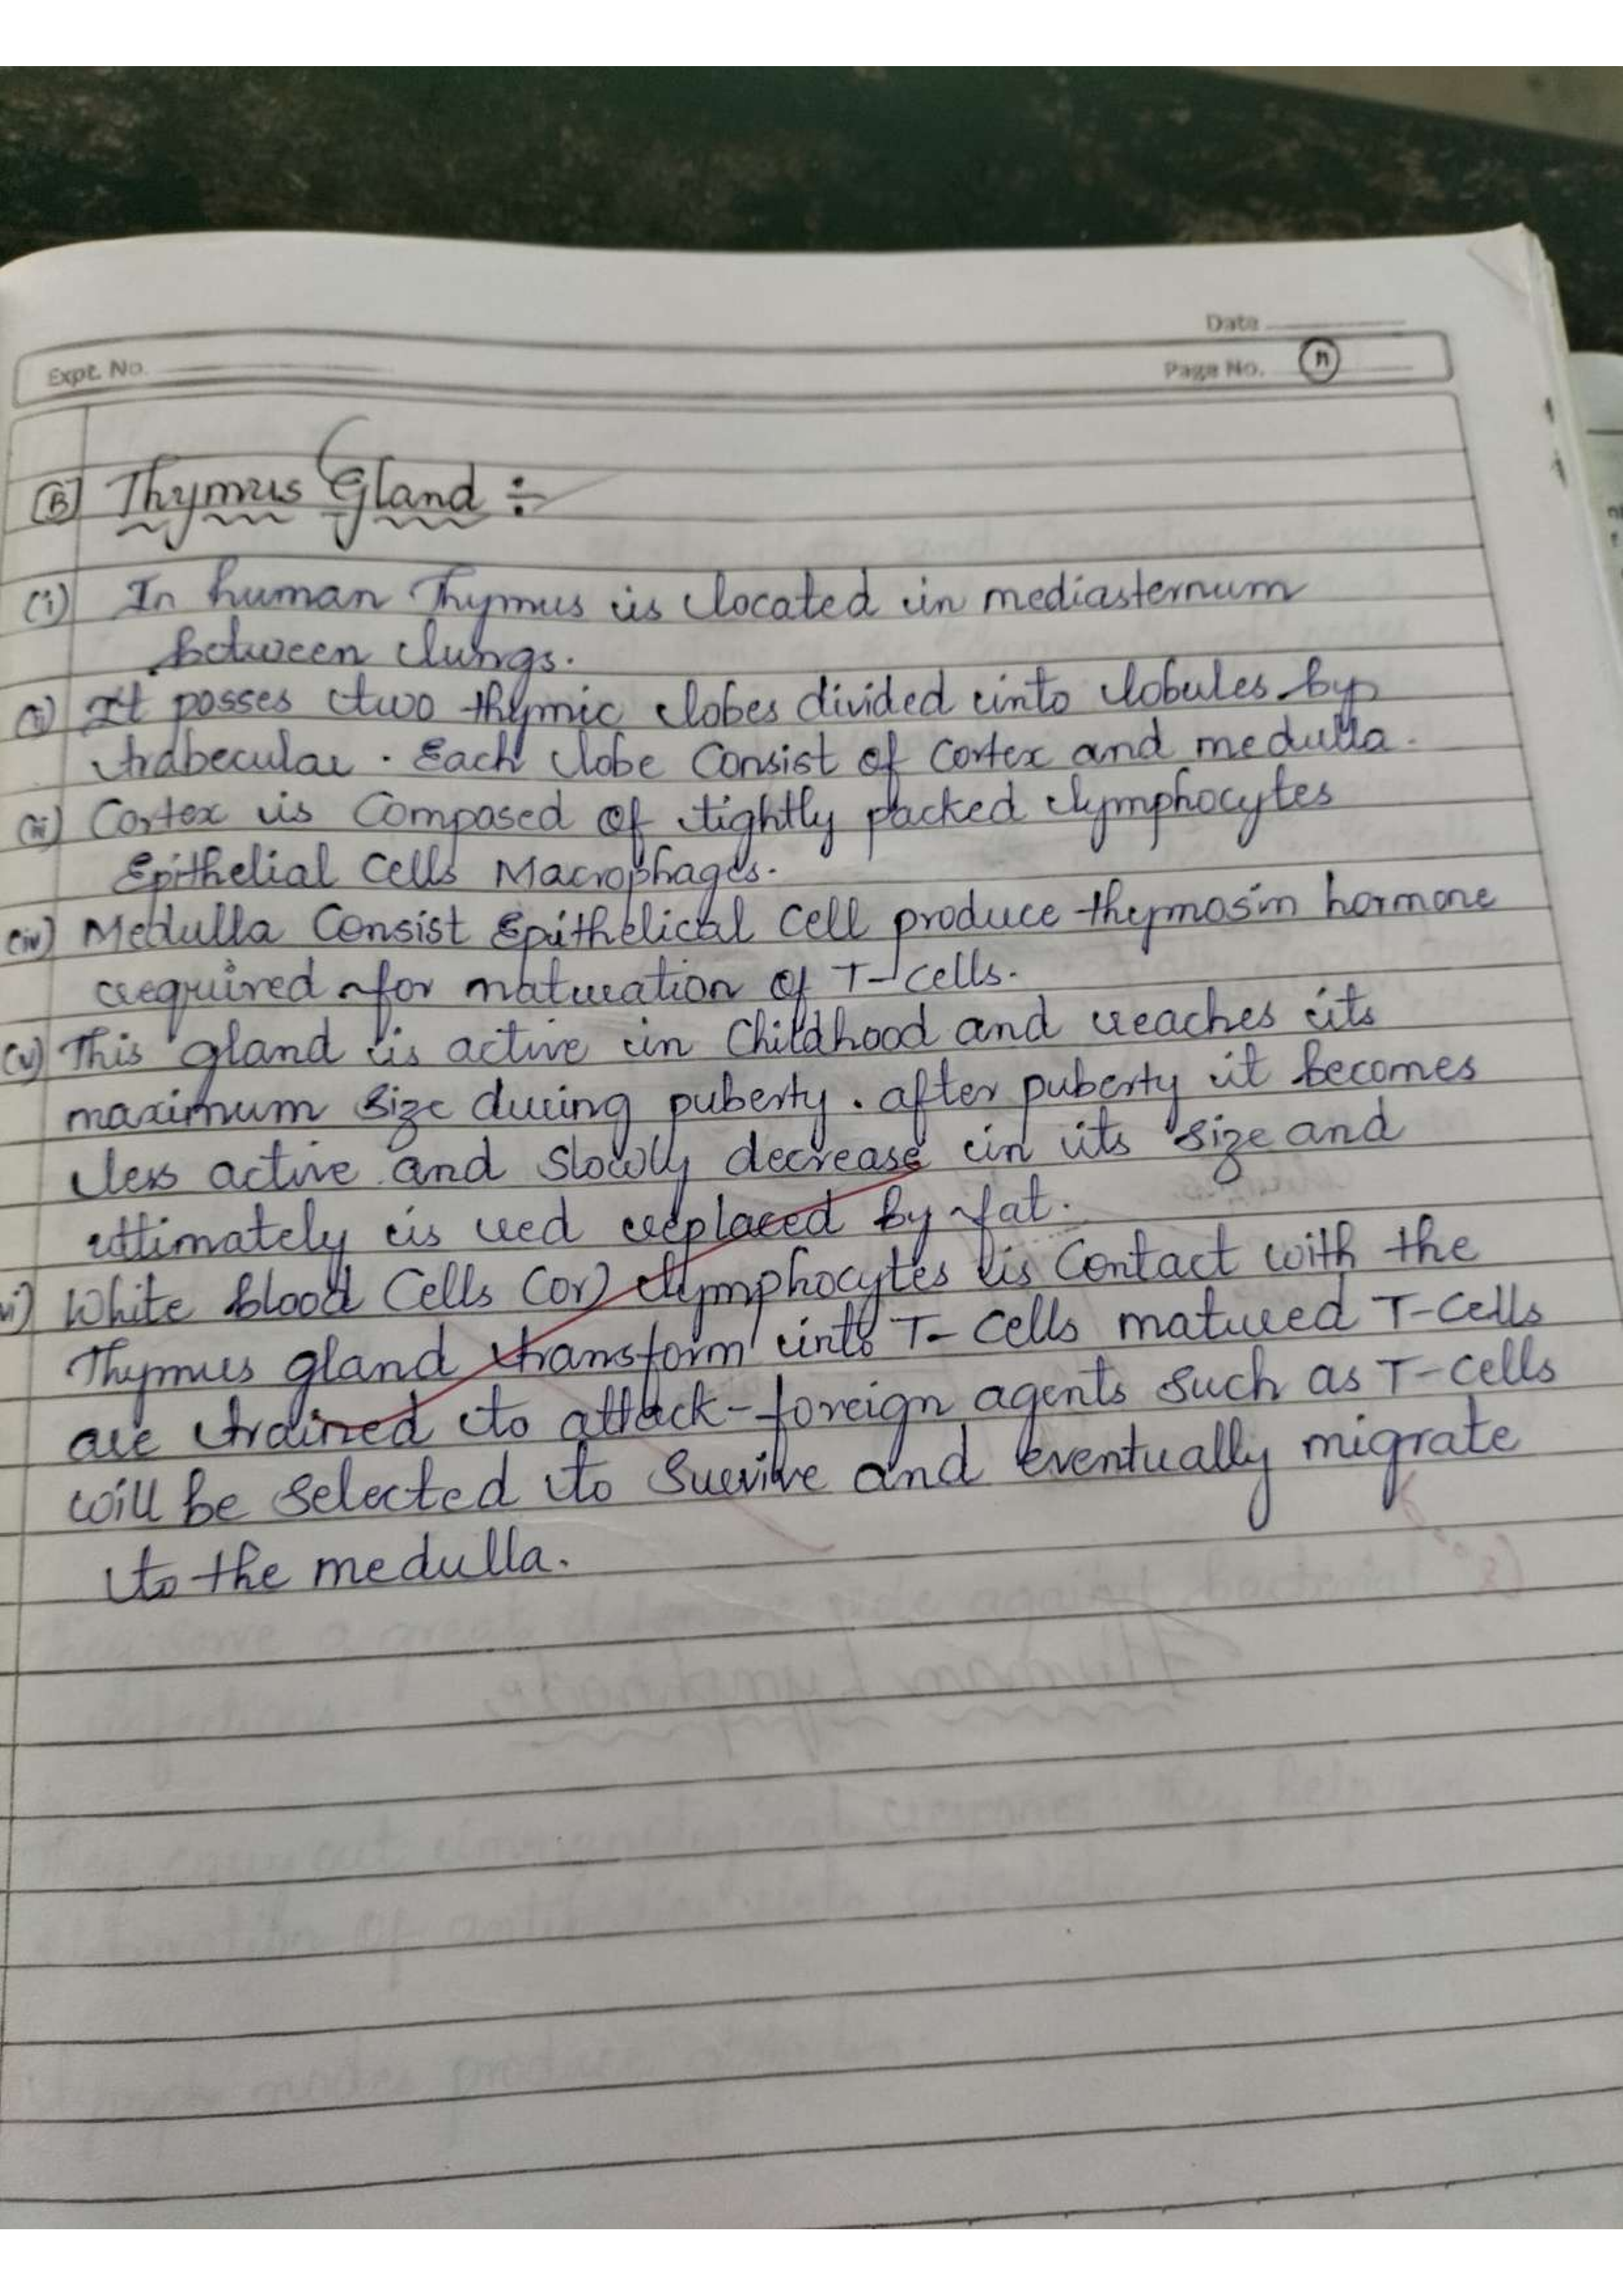 Date
Expt. No.
Page No. 11
(B) Thymus Gland :-
(i) In human Thymus is located in mediasternum
between lungs.
(ii) It posses two thymic lobes divided into lobules by
trabecular. Each lobe Consist of Cortex and medulla.
(iii) Cortex is Composed of tightly packed lymphocytes
Epithelial Cells Macrophages.
(iv) Medulla Consist Epithelical Cell produce thymosin hormone
required for maturation of T-cells.
(v) This gland is active in Childhood and reaches its
maximum size during puberty. after puberty it becomes
less active and slowly decrease in its size and
ultimately is red replaced by fat.
vi) White blood Cells (or) lymphocytes is Contact with the
Thymus gland transform into T-Cells matured T-Cells
are trained to attack-foreign agents such as T-cells
will be selected to survive and eventually migrate
to the medulla.